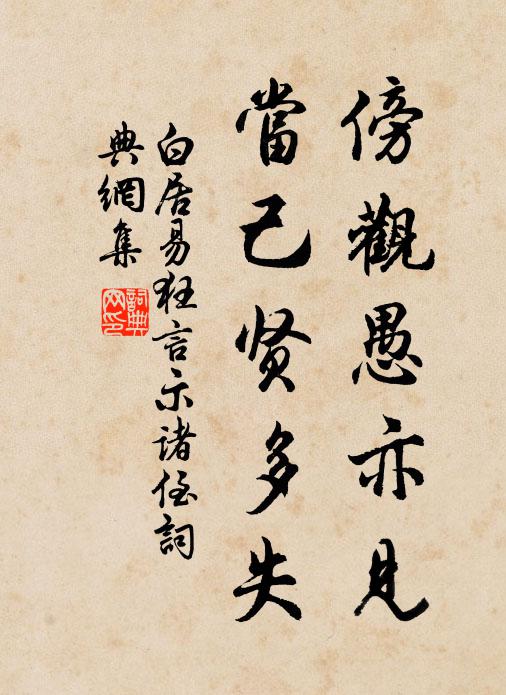 傍觀愚亦見
當己贤多失
白居易狂言示诸侄詞
典網集
詞典网印